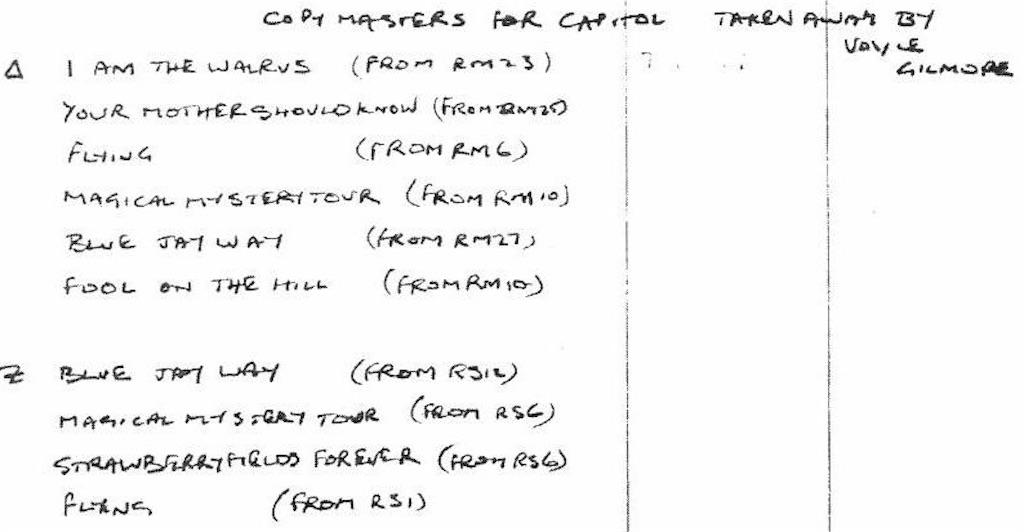 COPY MASTERS FOR CAPITOL TAKEN AWAY BY
VOYLE
GILMORE
Δ I AM THE WALRUS (FROM RM23)
YOUR MOTHER SHOULD KNOW (FROM RM25)
FLYING (FROM RM6)
MAGICAL MYSTERY TOUR (FROM RM10)
BLUE JAY WAY (FROM RM27)
FOOL ON THE HILL (FROM RM10)
Z BLUE JAY WAY (FROM RS12)
MAGICAL MYSTERY TOUR (FROM RS6)
STRAWBERRY FIELDS FOREVER (FROM RS6)
FLYING (FROM RS1)